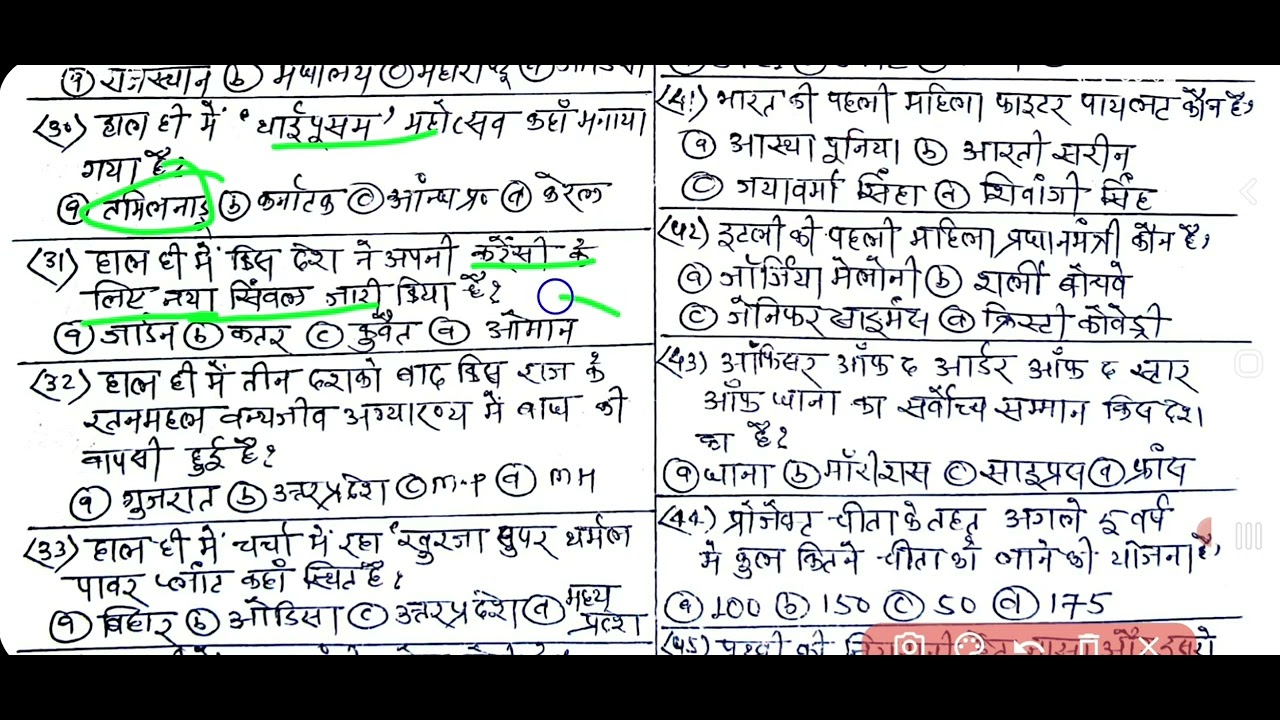 (a) राजस्थान (b) मेघालय (c) महाराष्ट्र (d)
(30) हाल ही में 'थाईपूसम' महोत्सव कहाँ मनाया
गया है?
(a) तमिलनाडु (b) कर्नाटक (c) आंन्ध्र प्र० (d) केरल
(31) हाल ही में किस देश ने अपनी करेंसी के
लिए नया सिंबल जारी किया है?
(a) जार्डन (b) कतर (c) कुवैत (d) ओमान
(32) हाल ही में तीन दशको बाद किस राज्य के
रतनमहल वन्यजीव अभ्यारण्य में बाघ की
वापसी हुई है?
(a) गुजरात (b) उत्तरप्रदेश (c) M.P (d) MH
(33) हाल ही में चर्चा में रहा 'खुरजा सुपर थर्मल
पावर प्लांट कहां स्थित है?
(a) बिहार (b) ओडिसा (c) उत्तरप्रदेश (d) मध्य
प्रदेश
(41) भारत की पहली महिला फाइटर पायलट कौन है?
(a) आस्था पूनिया (b) आरती सरीन
(c) जयावर्मा सिंहा (d) शिवांगी सिंह
(42) इटली की पहली महिला प्रधानमंत्री कौन है?
(a) जॉर्जिया मेलोनी (b) शर्ली बोचवे
(c) जेनिफर साइमंस (d) क्रिस्टी कोवेंट्री
(43) ऑफिसर ऑफ द आर्डर ऑफ द स्टार
ऑफ घाना का सर्वोच्च सम्मान किस देश
का है?
(a) घाना (b) मॉरीशस (c) साइप्रस (d) फ्रांस
(44) प्रोजेक्ट चीता के तहत अगले 5 वर्ष
में कुल कितने चीता को लाने की योजना है?
(a) 100 (b) 150 (c) 50 (d) 175
(45) पृथ्वी की